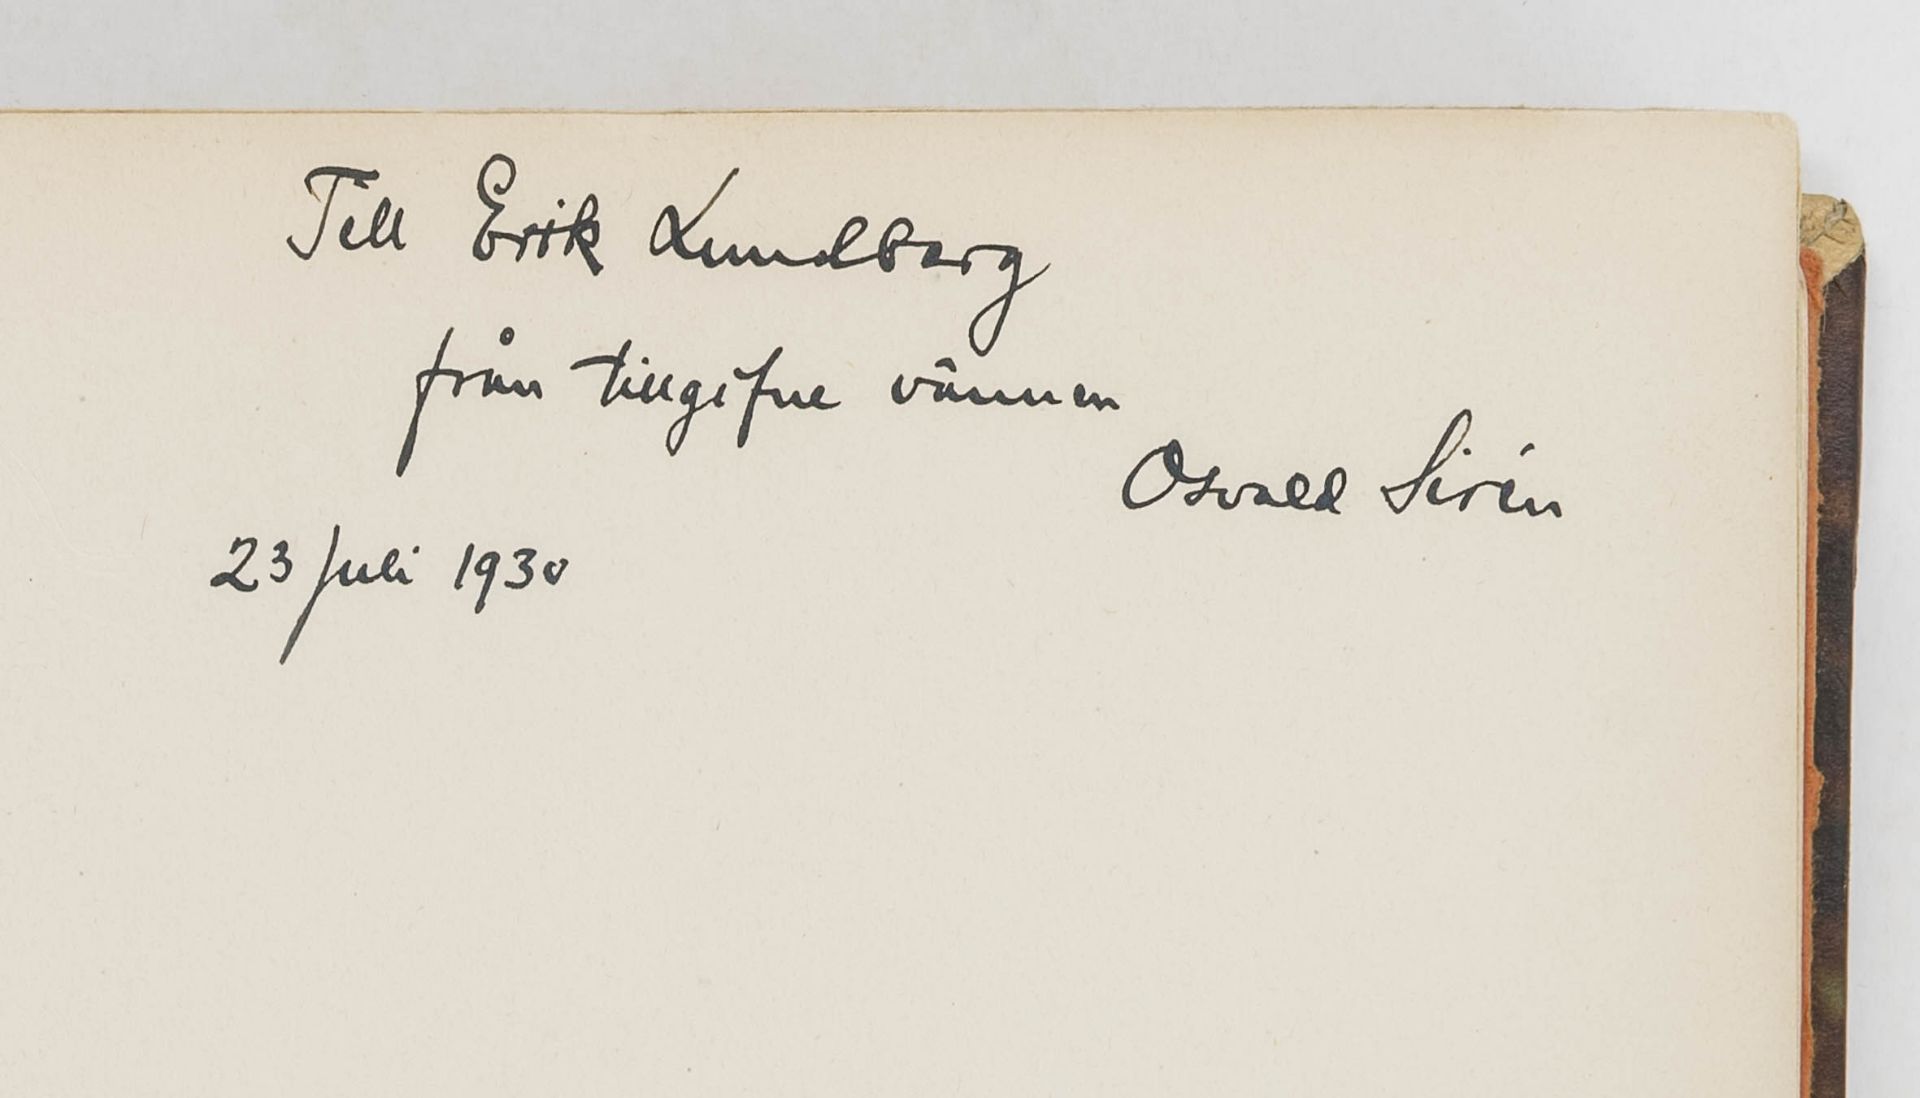 Till Erik Lundberg
från tillgifne vännen
Osvald Sirén
23 Juli 1930